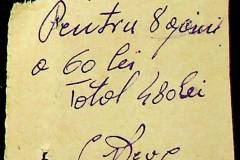 Pentru 8
a 60 lei
Total 480 lei